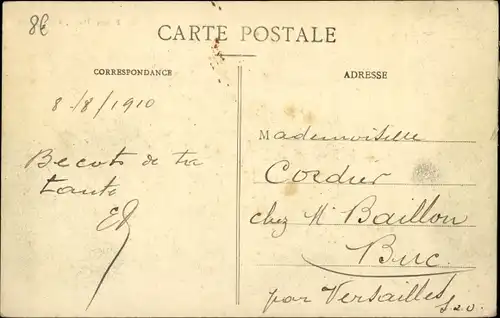 8€
CARTE POSTALE
CORRESPONDANCE
ADRESSE
8/8/1910
Becots de ta
tante
Mademoiselle
Cordier
chez M Baillon
Buc
par Versailles
S&O